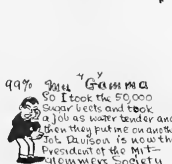 99% Mu "y" Gamma
So I took the 50,000
Sugar beets and took
a job as water tender and
then they put me on anothe
Job. Davison is now th
President of the Mit-
glommers Society